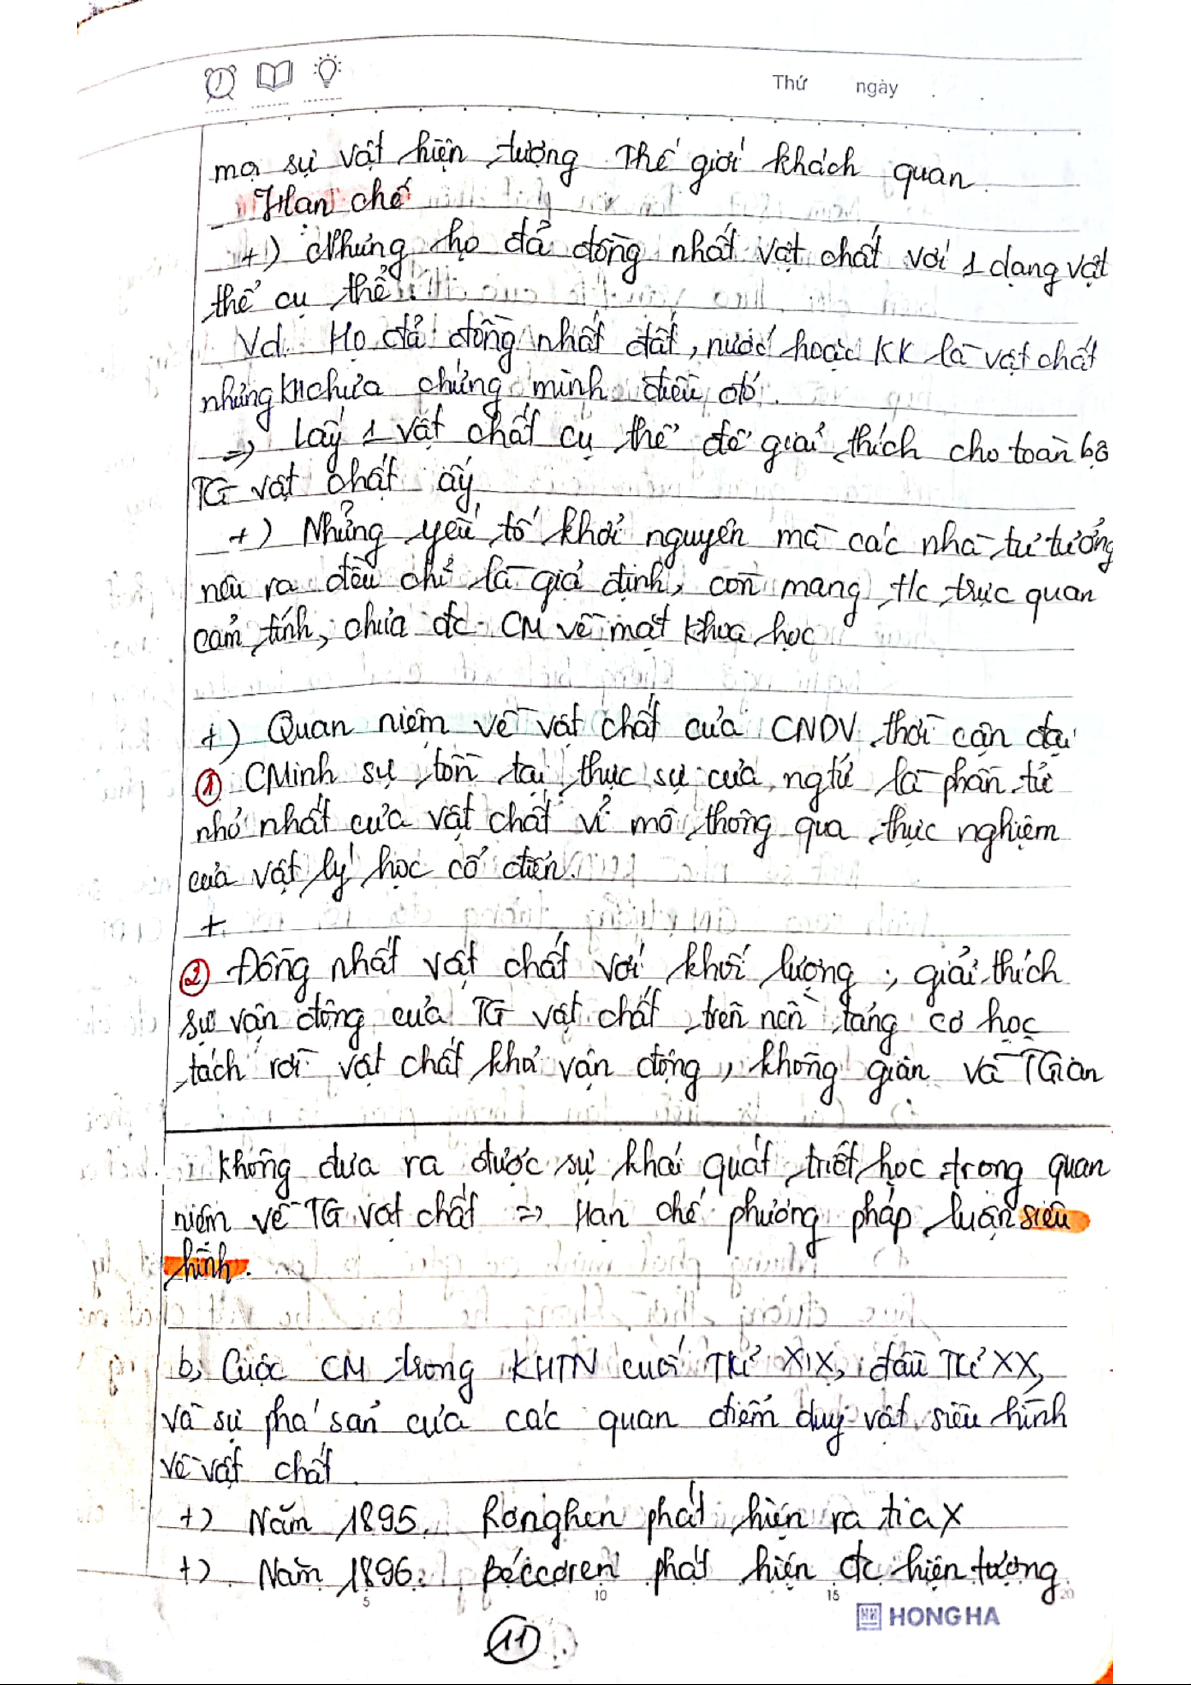 Thứ ngày
mọi sự vật hiện tượng Thế giới khách quan.
_ Hạn chế
+) Nhưng họ đã đồng nhất vật chất với 1 dạng vật
thể cụ thể.
Vd. Họ đã đồng nhất đất, nước hoặc KK là vật chất
nhưng KH chưa chứng minh điều đó.
=> Lấy 1 vật chất cụ thể để giải thích cho toàn bộ
TG vật chất ấy
+) Những yếu tố khởi nguyên mà các nhà tư tưởng
nêu ra đều chỉ là giả định, còn mang t/c trực quan
cảm tính, chưa đc CM về mặt khoa học
+) Quan niệm về vật chất của CNDV thời cận đại
① CMinh sự tồn tại thực sự của ngtử là phần tử
nhỏ nhất của vật chất vĩ mô thông qua thực nghiệm
của vật lý học cổ điển.
+
② Đồng nhất vật chất với khối lượng; giải thích
sự vận động của TG vật chất trên nền tảng cơ học
tách rời vật chất khỏi vận động, không gian và TGian
không đưa ra được sự khái quát triết học trong quan
niệm về TG vật chất => Hạn chế phương pháp luận siêu
hình.
b, Cuộc CM trong KHTN cuối TKỉ XIX, đầu TKỉ XX,
và sự phá sản của các quan điểm duy vật siêu hình
về vật chất
+) Năm 1895. Rơnghen phát hiện ra tia X
+) Năm 1896. Béccơren phát hiện đc hiện tượng
5 10 15 20
HONG HA
11